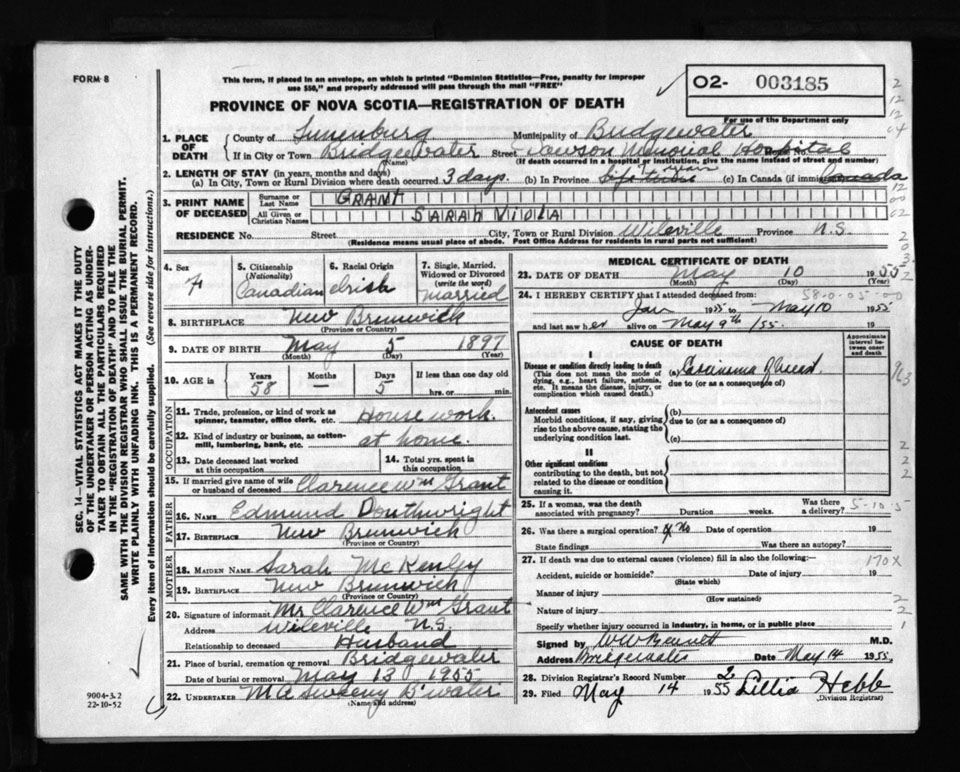 FORM 8
This form, if placed in an envelope, on which is printed "Dominion Statistics—Free, penalty for improper
use $50," and properly addressed will pass through the mail "FREE"
O2- 003185
PROVINCE OF NOVA SCOTIA—REGISTRATION OF DEATH
For use of the Department only
1. PLACE OF DEATH
County of Lunenburg Municipality of Bridgewater
If in City or Town Bridgewater Street Dawson Memorial Hospital No.
(Name) (If death occurred in a hospital or institution, give the name instead of street and number)
2. LENGTH OF STAY (in years, months and days)
(a) In City, Town or Rural Division where death occurred 3 days. (b) In Province (c) In Canada (if immigrant)
3. PRINT NAME OF DECEASED
Surname or Last Name GRANT
All Given or Christian Names SARAH VIOLA
RESIDENCE No. Street City, Town or Rural Division Wileville Province N.S.
(Residence means usual place of abode. Post Office Address for residents in rural parts not sufficient)
4. Sex F
5. Citizenship (Nationality) Canadian
6. Racial Origin Irish
7. Single, Married, Widowed or Divorced (write the word) Married
8. BIRTHPLACE New Brunwich
(Province or Country)
9. DATE OF BIRTH May 5 1897
(Month) (Day) (Year)
10. AGE in Years 58 Months — Days 5 If less than one day old
hrs. or min.
OCCUPATION
11. Trade, profession, or kind of work as spinner, teamster, office clerk, etc. House work.
12. Kind of industry or business, as cotton-mill, lumbering, bank, etc. at home.
13. Date deceased last worked at this occupation
14. Total yrs. spent in this occupation
15. If married give name of wife or husband of deceased Clarence Wm Grant
FATHER
16. NAME Edmund Douthwright
17. BIRTHPLACE New Brunwich
(Province or Country)
MOTHER
18. MAIDEN NAME Sarah McKenley
19. BIRTHPLACE New Brunwich
(Province or Country)
20. Signature of informant Mr Clarence Wm Grant
Address Wileville N.S.
Relationship to deceased Husband
21. Place of burial, cremation or removal Bridgewater
Date of burial or removal May 13 1955
22. UNDERTAKER M A Sweeny B'water
(Name and address)
MEDICAL CERTIFICATE OF DEATH
23. DATE OF DEATH May 10 1955
(Month) (Day)
58-0-05-00
24. I HEREBY CERTIFY that I attended deceased from:
Jan 1955 to May 10 1955
and last saw her alive on May 9th /55. 19
CAUSE OF DEATH
Approximate interval between onset and death
I
Disease or condition directly leading to death
(This does not mean the mode of dying, e.g., heart failure, asthenia, etc. It means the disease, injury, or complication which caused death.)
(a) Carcinoma of breast
due to (or as a consequence of)
Antecedent causes
Morbid conditions, if any, giving rise to the above cause, stating the underlying condition last.
(b)
due to (or as a consequence of)
(c)
II
Other significant conditions
contributing to the death, but not related to the disease or condition causing it.
25. If a woman, was the death associated with pregnancy? Duration weeks. Was there a delivery?
5-10-5
26. Was there a surgical operation? No Date of operation 19
State findings Was there an autopsy?
27. If death was due to external causes (violence) fill in also the following:— 170X
Accident, suicide or homicide? Date of injury 19
(State which)
Manner of injury
(How sustained)
Nature of injury
Specify whether injury occurred in industry, in home, or in public place
Signed by W W Bennett M.D.
Address Bridgewater Date May 14 1955.
28. Division Registrar's Record Number 2
29. Filed May 14 1955 Lillia Hebb
(Division Registrar)
SEC. 14—VITAL STATISTICS ACT MAKES IT THE DUTY
OF THE UNDERTAKER OR PERSON ACTING AS UNDER-
TAKER TO OBTAIN ALL THE PARTICULARS REQUIRED
IN THE "REGISTRATION OF DEATH" AND TO FILE THE
SAME WITH THE DIVISION REGISTRAR WHO SHALL ISSUE THE BURIAL PERMIT.
WRITE PLAINLY WITH UNFADING INK. THIS IS A PERMANENT RECORD.
Every item of information should be carefully supplied. (See reverse side for instructions.)
9004-3.2
22-10-52